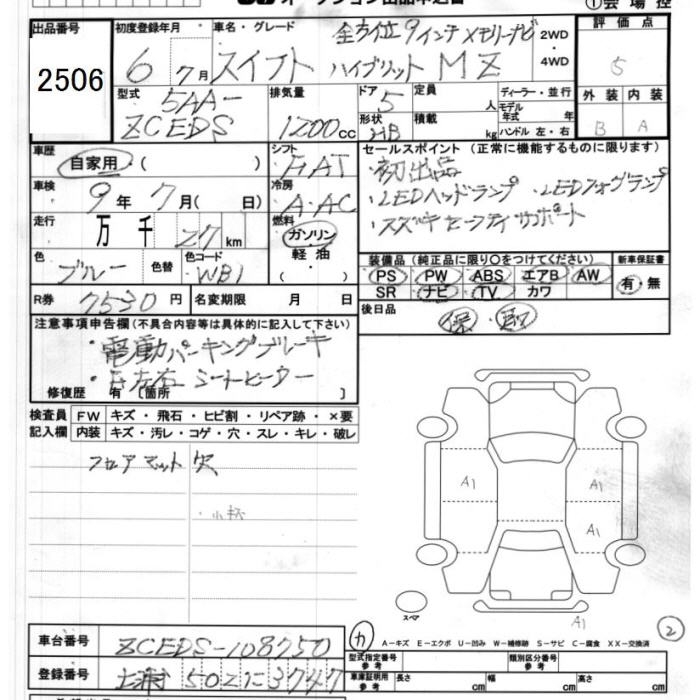 出品番号 2506
初度登録年月 6年 7月
車名・グレード 全方位9インチメモリーナビ
スイフト ハイブリット MZ
2WD ・ 4WD
評価点 5
外装 内装
B A
型式 5AA-
ZCEDS
排気量 1200cc
ドア 5
形状 HB
定員 人
積載 kg
ディーラー・並行
モデル年式 年
ハンドル 左・右
車歴 自家用 ( )
シフト FAT
車検 9年 7月( 日)
冷房 A・AC
走行 万 千 27 km
燃料 ガソリン
・軽油・
( )
色 ブルー
色替
色コード WB1
R券 7530円
名変期限 月 日
セールスポイント (正常に機能するものに限ります)
・初出品
・LEDヘッドランプ ・LEDフォグランプ
・スズキセーフティサポート
装備品 (純正品に限り○をつけてください)
PS PW ABS エアB AW
SR ナビ TV カワ
新車保証書
有・無
後日品 保・取
注意事項申告欄 (不具合内容等は具体的に記入して下さい)
・電動パーキングブレーキ
・左右シートヒーター
修復歴 有 [箇所 ]
検査員記入欄
FW キズ・飛石・ヒビ割・リペア跡・×要
内装 キズ・汚レ・コゲ・穴・スレ・キレ・破レ
フロアマット 穴
A1 A1
A1
スペア
A1
カ
2
A-キズ E-エクボ U-凹み W-補修跡 S-サビ C-腐食 XX-交換済
車台番号 ZCEDS-108750
登録番号 土浦 502 に 3747
型式指定番号 参考
類別区分番号 参考
車庫証明用 参考 長さ cm 幅 cm 高さ cm